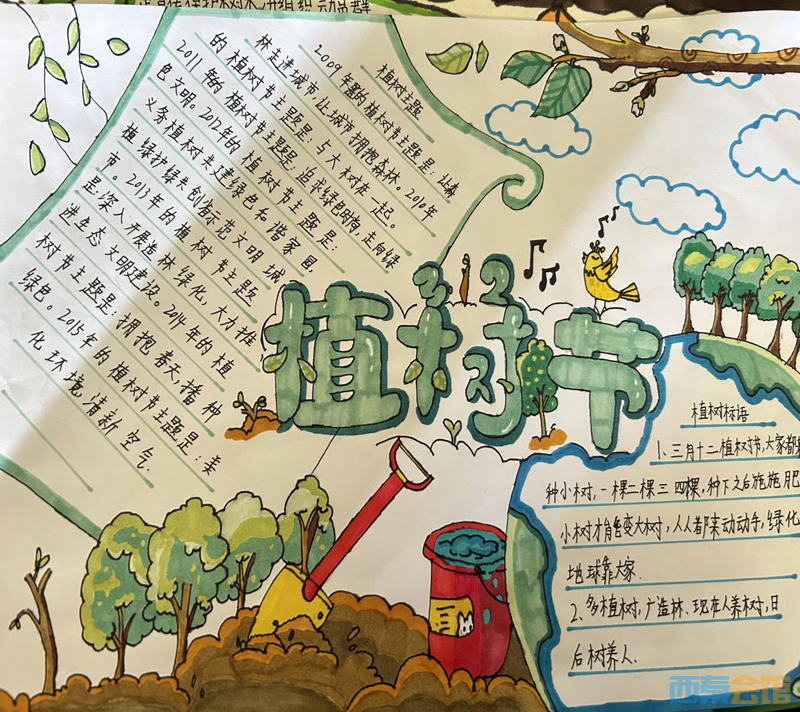 植树主题
2009年的植树节主题是:让森
林走进城市,让城市拥抱森林。2010年
的植树节主题是:与大树在一起。
2011年的植树节主题是:追求绿色时尚,走向绿
色文明。2012年的植树节主题是:
义务植树共建绿色和谐家园,
植绿护绿共创省示范文明城
市。2013年的植树节主题
是:深入开展造林绿化,大力推
进生态文明建设。2014年的植
树节主题是:拥抱春天,播种
绿色。2015年的植树节主题是:美
化环境,清新空气.
植树节
植树标语
1、三月十二植树节,大家都来
种小树,一棵二棵三四棵,种下之后施施肥
小树才能变大树,人人都来动动手,绿化
地球靠大家.
2、多植树,广造林、现在人养树,日
后树养人.
西秦会馆